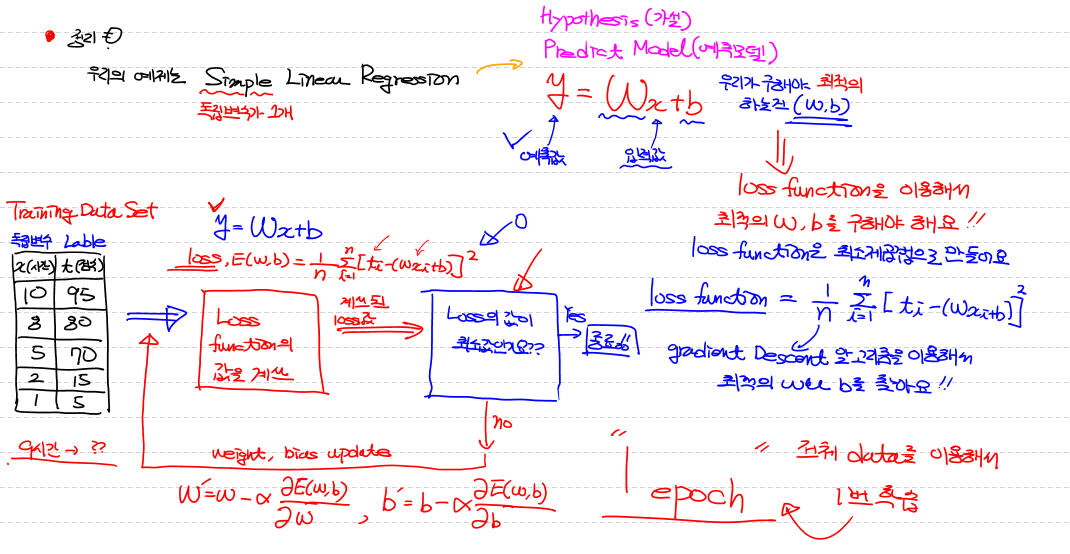 정리
우리의 예제는 Simple Linear Regression
독립변수가 1개
Hypothesis (가설)
Predict Model (예측모델)
y = Wx+b
예측값
입력값
우리가 구해야 하는건 최적의 (W,b)
loss function을 이용해서
최적의 W, b를 구해야 해요!!
loss function을 최소제곱법으로 만들어요
loss function = 1/n Σ(i=1..n) [ti-(Wxi+b)]²
gradient Descent 알고리즘을 이용해서
최적의 W와 b를 찾아요!!
Training Data Set
독립변수 Lable
x(시간) t(점수)
10 95
8 80
5 70
2 15
1 5
9시간 → ??
y = Wx+b
loss, E(w,b) = 1/n Σ(i=1..n) [ti-(wxi+b)]²
0
Loss
function의
값을 계산
계산된
loss값
Loss의 값이
최소값인가요??
Yes
종료!!
no
weight, bias updates
W′=w-α ∂E(w,b)/∂w , b′=b-α ∂E(w,b)/∂b
"1 epoch"
전체 data를 이용해서
1번 학습